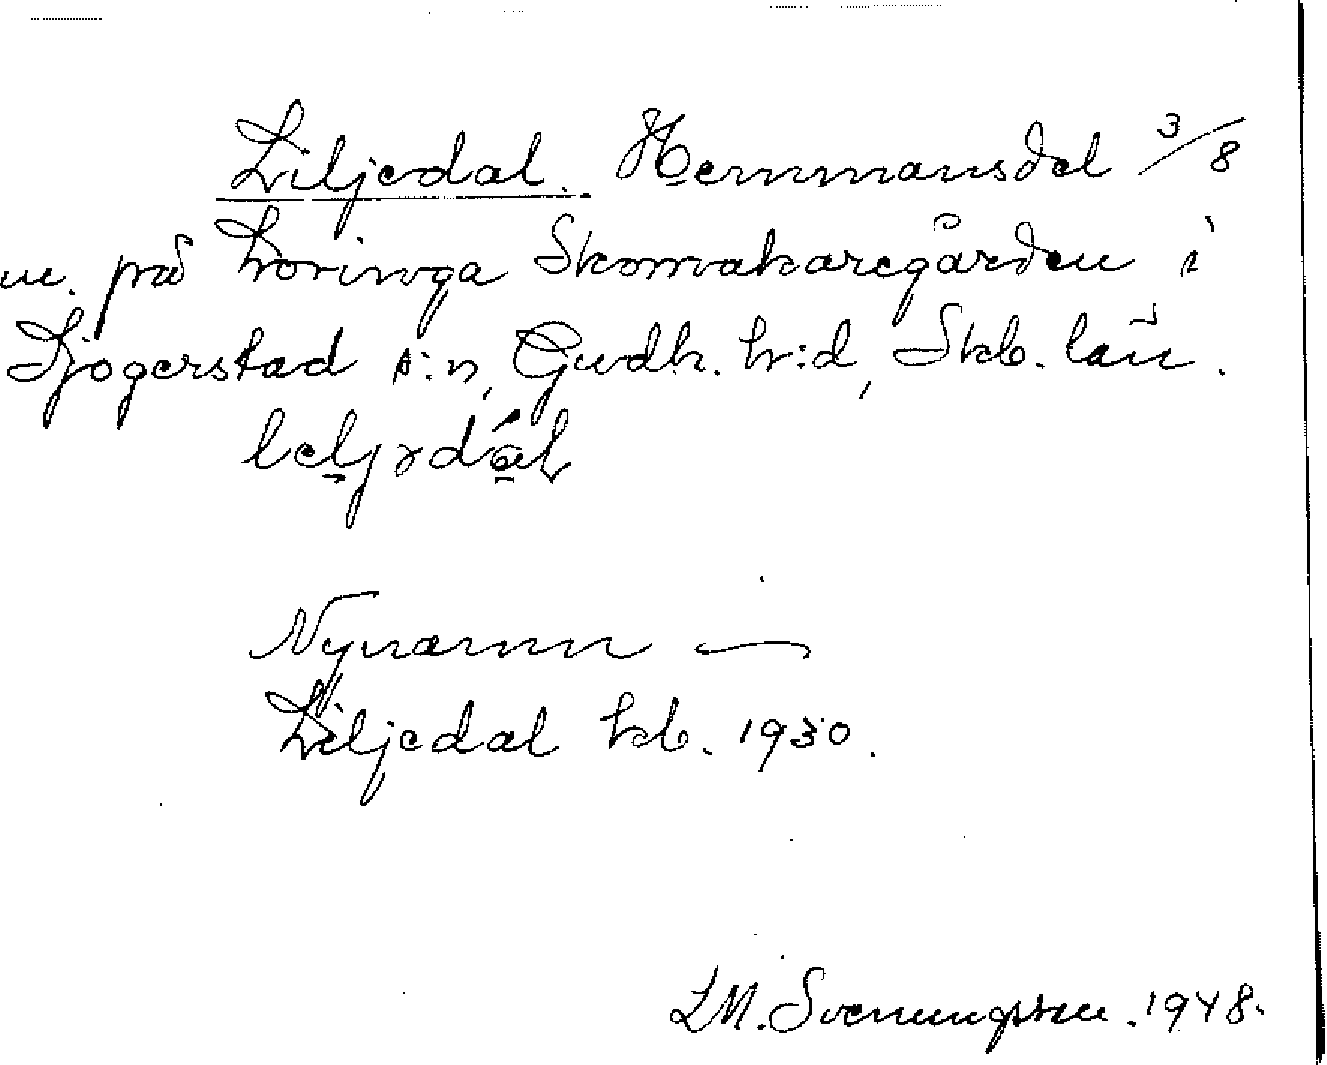 Liljedal. Hemmansdel 3/8
m. på Lovinga Skomakaregården i
Sjogerstad s:n, Gudh. h:d, Skb. län.
Nynamn —
Liljedal kb. 1930.
LM. Svenungsson. 1948.